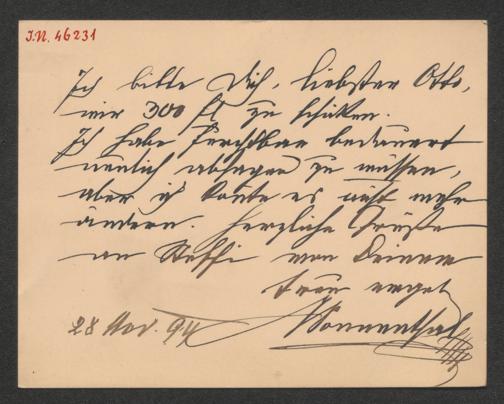 I.N. 46231
Ich bitte Dich, liebster Otto,
mir 300 fl zu schicken.
Ich habe furchtbar bedauert
neulich absagen zu müssen,
aber ich konnte es nicht mehr
ändern. Herzliche Grüße
an Steffi von Deinem
treu erget
Sonnenthal
28 Nov. 94